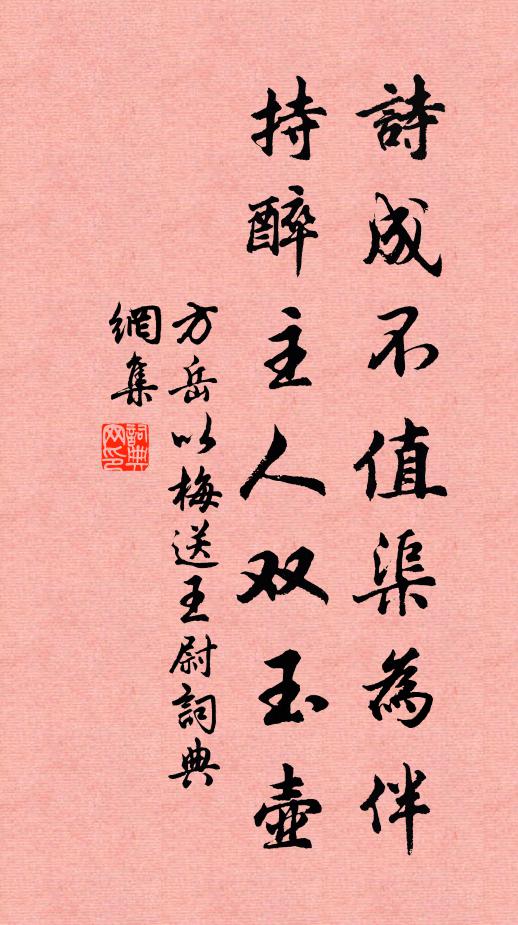 詩成不值渠為伴
持醉主人双玉壺
方岳以梅送王尉詞典
網集
詞典网印